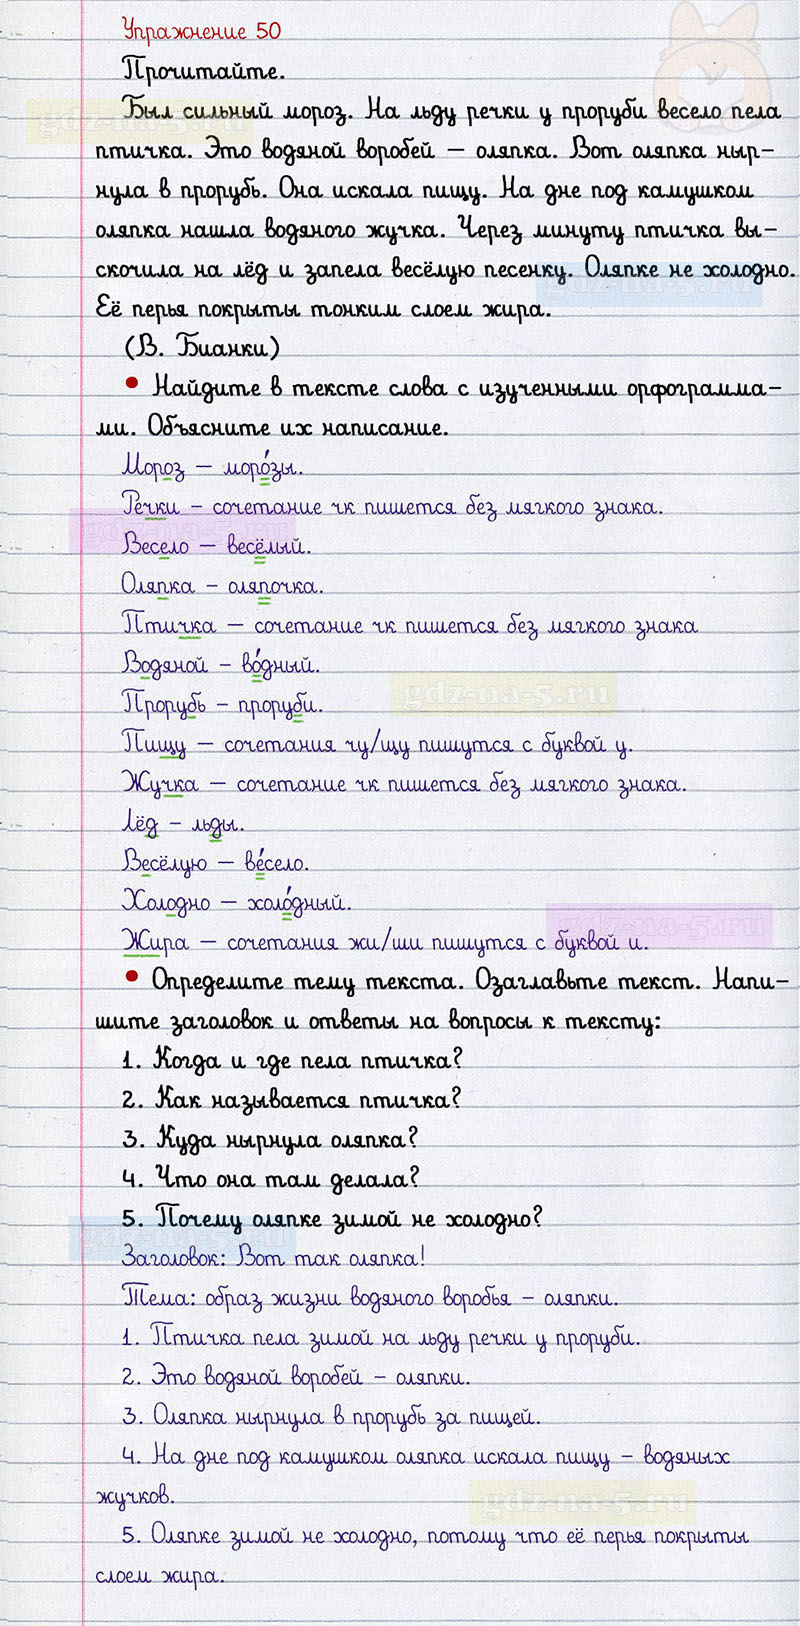 Упражнение 50
Прочитайте.
Был сильный мороз. На льду речки у проруби весело пела
птичка. Это водяной воробей – оляпка. Вот оляпка ныр-
нула в прорубь. Она искала пищу. На дне под камушком
оляпка нашла водяного жучка. Через минуту птичка вы-
скочила на лёд и запела весёлую песенку. Оляпке не холодно.
Её перья покрыты тонким слоем жира.
(В. Бианки)
• Найдите в тексте слова с изученными орфограмма-
ми. Объясните их написание.
Мороз – моро́зы.
Речки – сочетание чк пишется без мягкого знака.
Весело – весёлый.
Оляпка – оляпочка.
Птичка – сочетание чк пишется без мягкого знака
Водяной – во́дный.
Прорубь – проруби.
Пищу – сочетания чу/щу пишутся с буквой у.
Жучка – сочетание чк пишется без мягкого знака.
Лёд – льды.
Весёлую – ве́село.
Холодно – холо́дный.
Жира – сочетания жи/ши пишутся с буквой и.
• Определите тему текста. Озаглавьте текст. Напи-
шите заголовок и ответы на вопросы к тексту:
1. Когда и где пела птичка?
2. Как называется птичка?
3. Куда нырнула оляпка?
4. Что она там делала?
5. Почему оляпке зимой не холодно?
Заголовок: Вот так оляпка!
Тема: образ жизни водяного воробья – оляпки.
1. Птичка пела зимой на льду речки у проруби.
2. Это водяной воробей – оляпки.
3. Оляпка нырнула в прорубь за пищей.
4. На дне под камушком оляпка искала пищу – водяных
жучков.
5. Оляпке зимой не холодно, потому что её перья покрыты
слоем жира.
gdz-na-5.ru
gdz-na-5.ru
gdz-na-5.ru
gdz-na-5.ru
gdz-na-5.ru
gdz-na-5.ru
gdz-na-5.ru